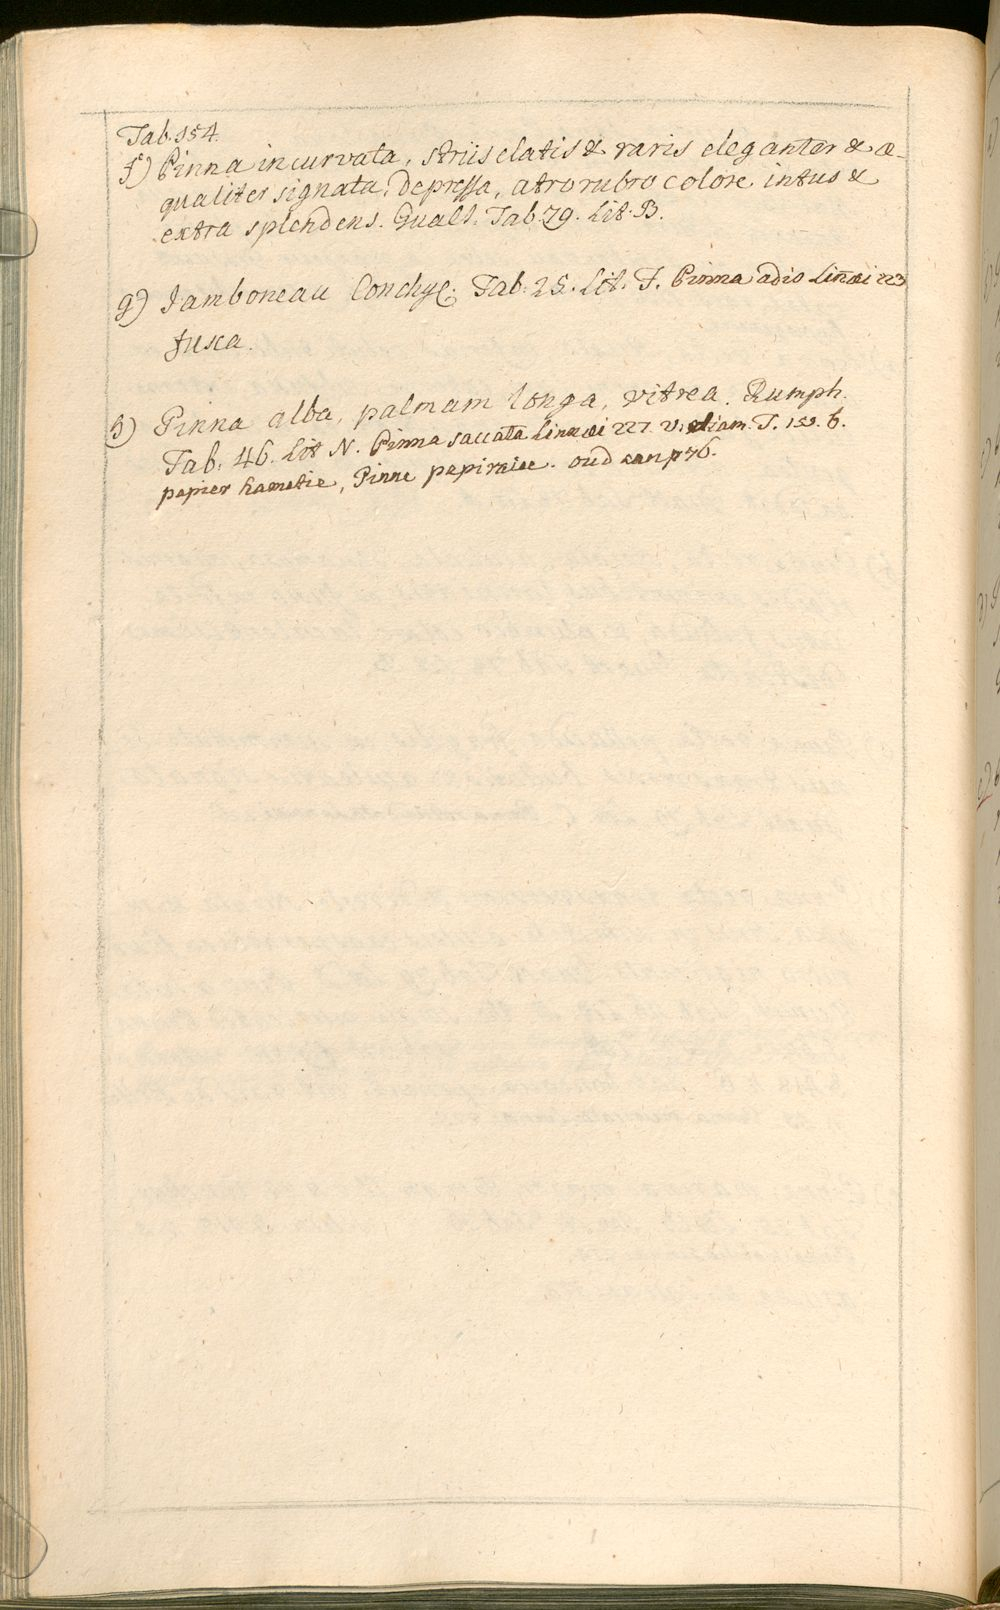 Tab. 154.
f) Pinna incurvata, striis elatis & raris eleganter & æ-
qualiter signata, depressa, atrorubro colore intus &
extra splendens. Gualt. Tab. 79. Lit. B.
g) Jamboneau Conchyl. Tab. 25. Lit. F. Pinna adio Linæi 223
fusca.
h) Pinna alba, palmam longa, vitrea. Rumph.
Tab. 46. Lit N. Pinna saccata Linnæi 227. T. 153. 6.
papier hametie, Pinne papiraiee. oud